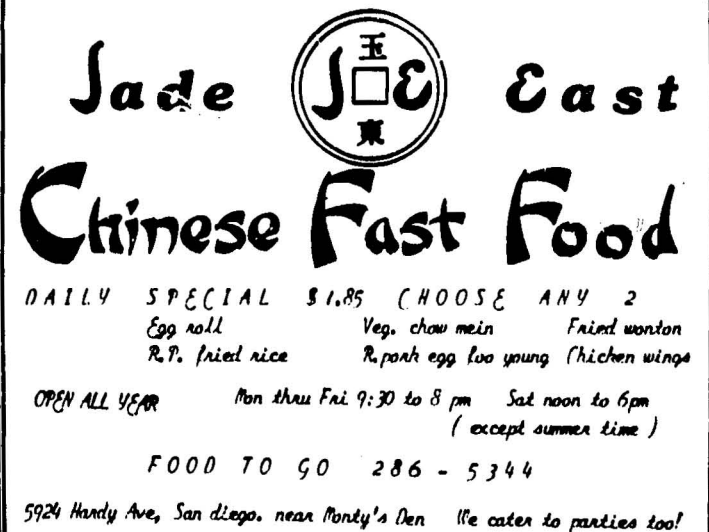 Jade 玉 J E 東 East
Chinese Fast Food
DAILY SPECIAL $1.85 CHOOSE ANY 2
Egg roll Veg. chow mein Fried wonton
R.P. fried rice R.pork egg foo young Chicken wings
OPEN ALL YEAR Mon thru Fri 9:30 to 8 pm Sat noon to 6pm
( except summer time )
FOOD TO GO 286 - 5344
5924 Hardy Ave, San diego. near Monty's Den We cater to parties too!